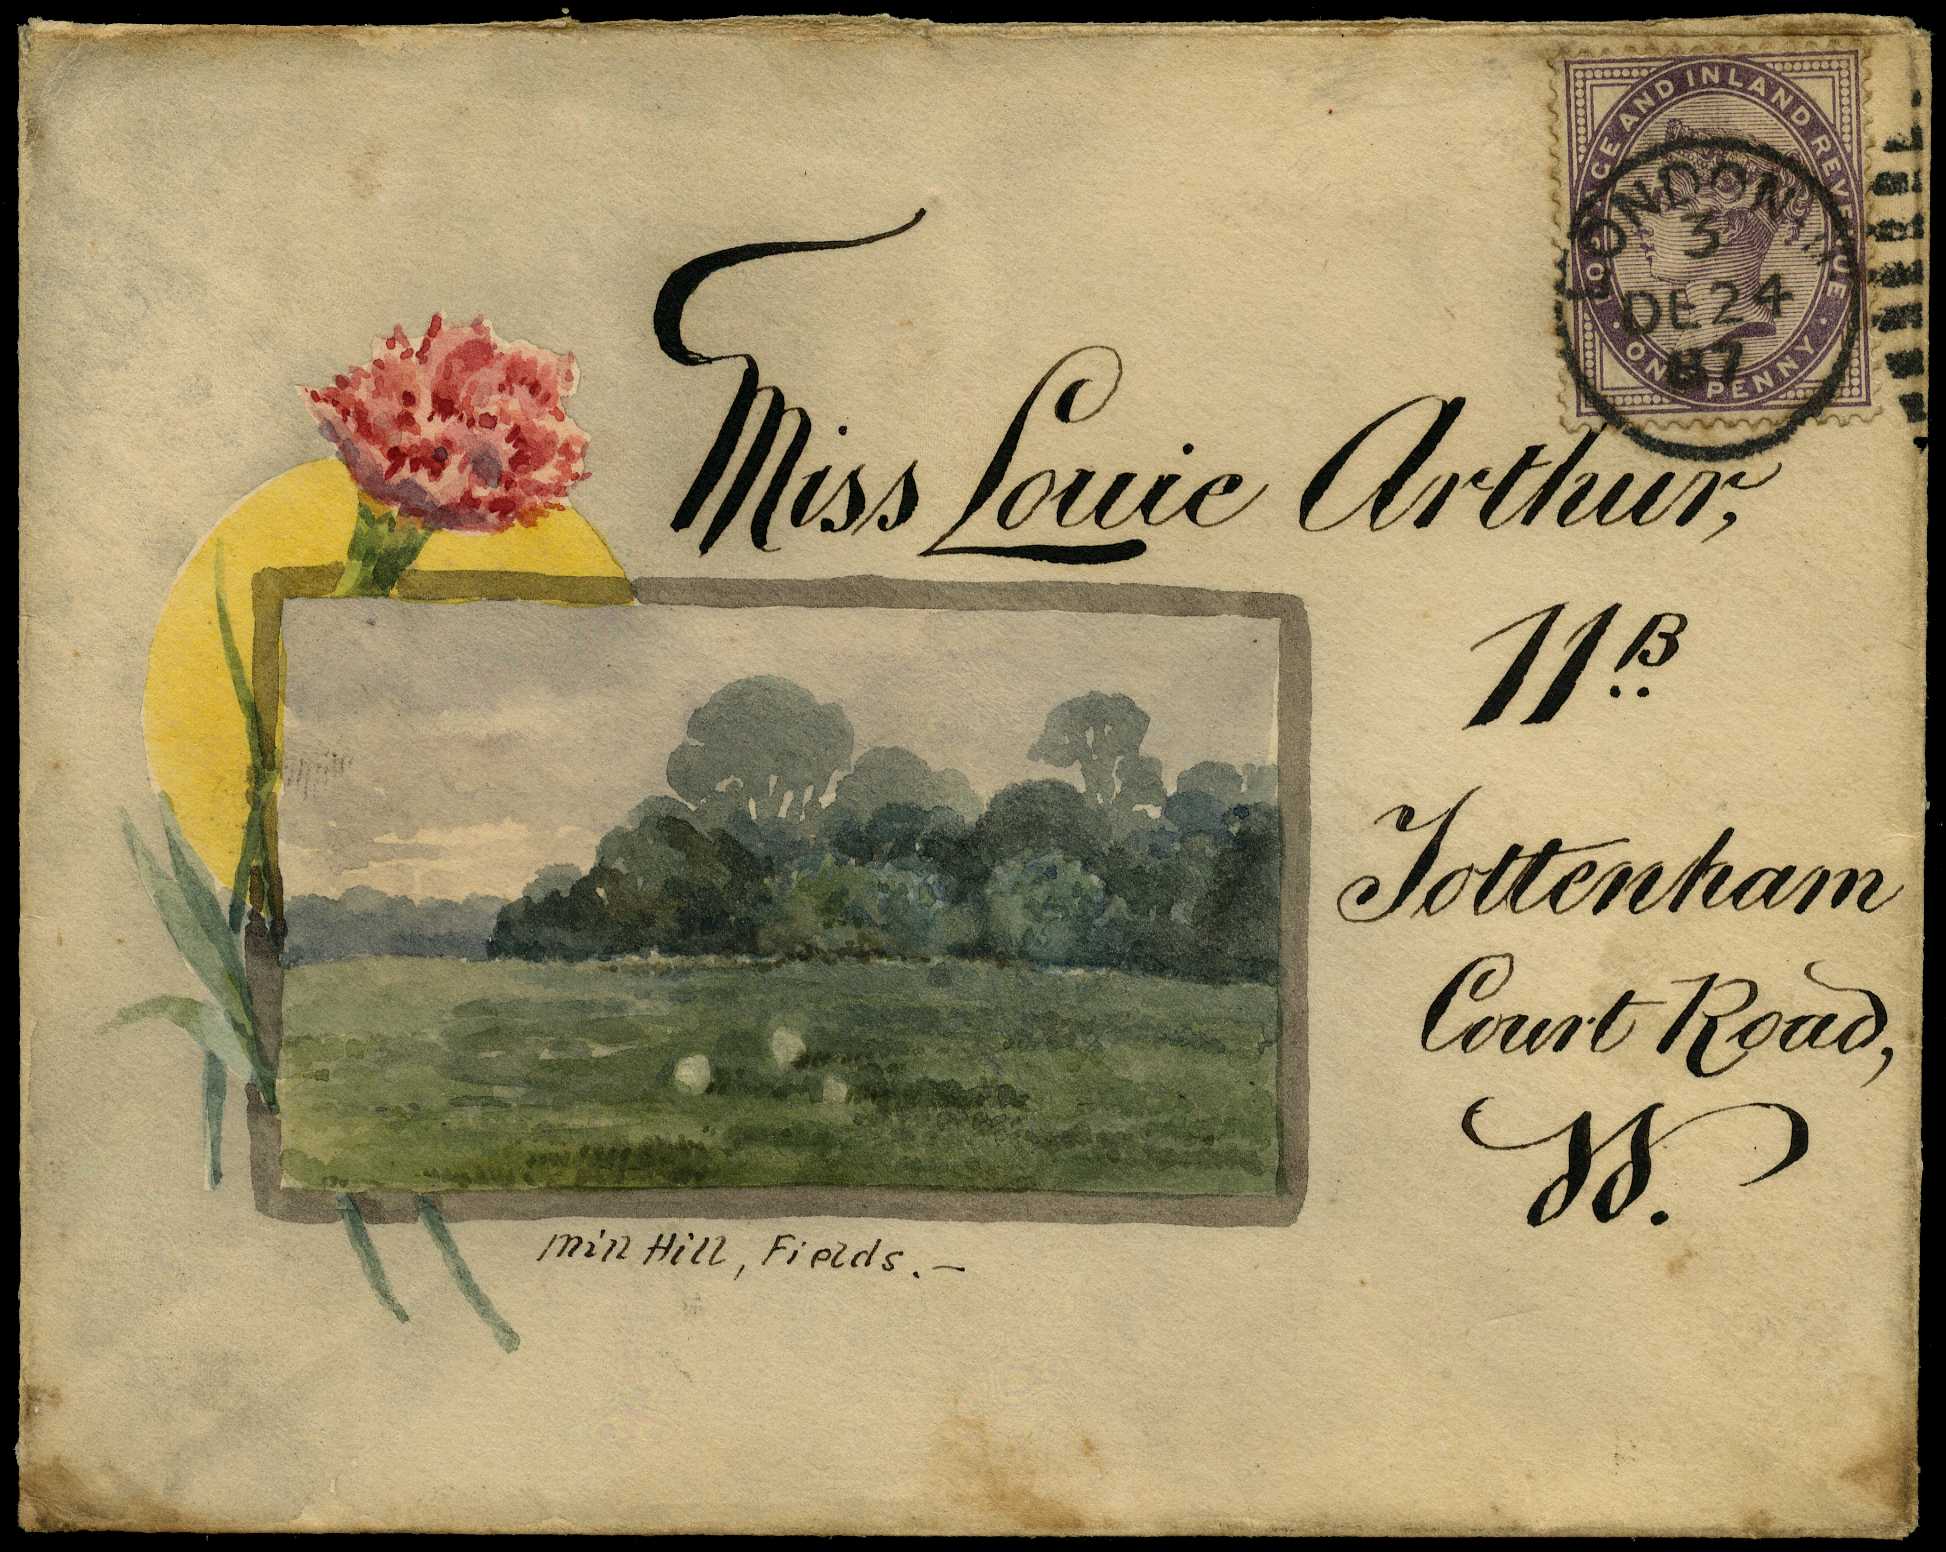 POSTAGE AND INLAND REVENUE
ONE PENNY
LONDON W
3
DE 24
87
Miss Louie Arthur,
11B
Tottenham
Court Road,
W.
Mill Hill, Fields. —